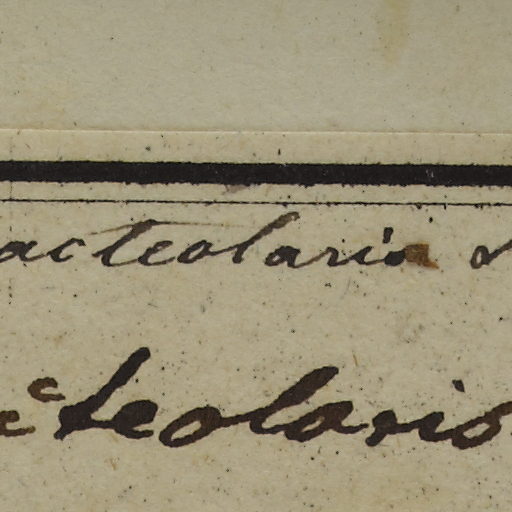 acteolaria
cteolario